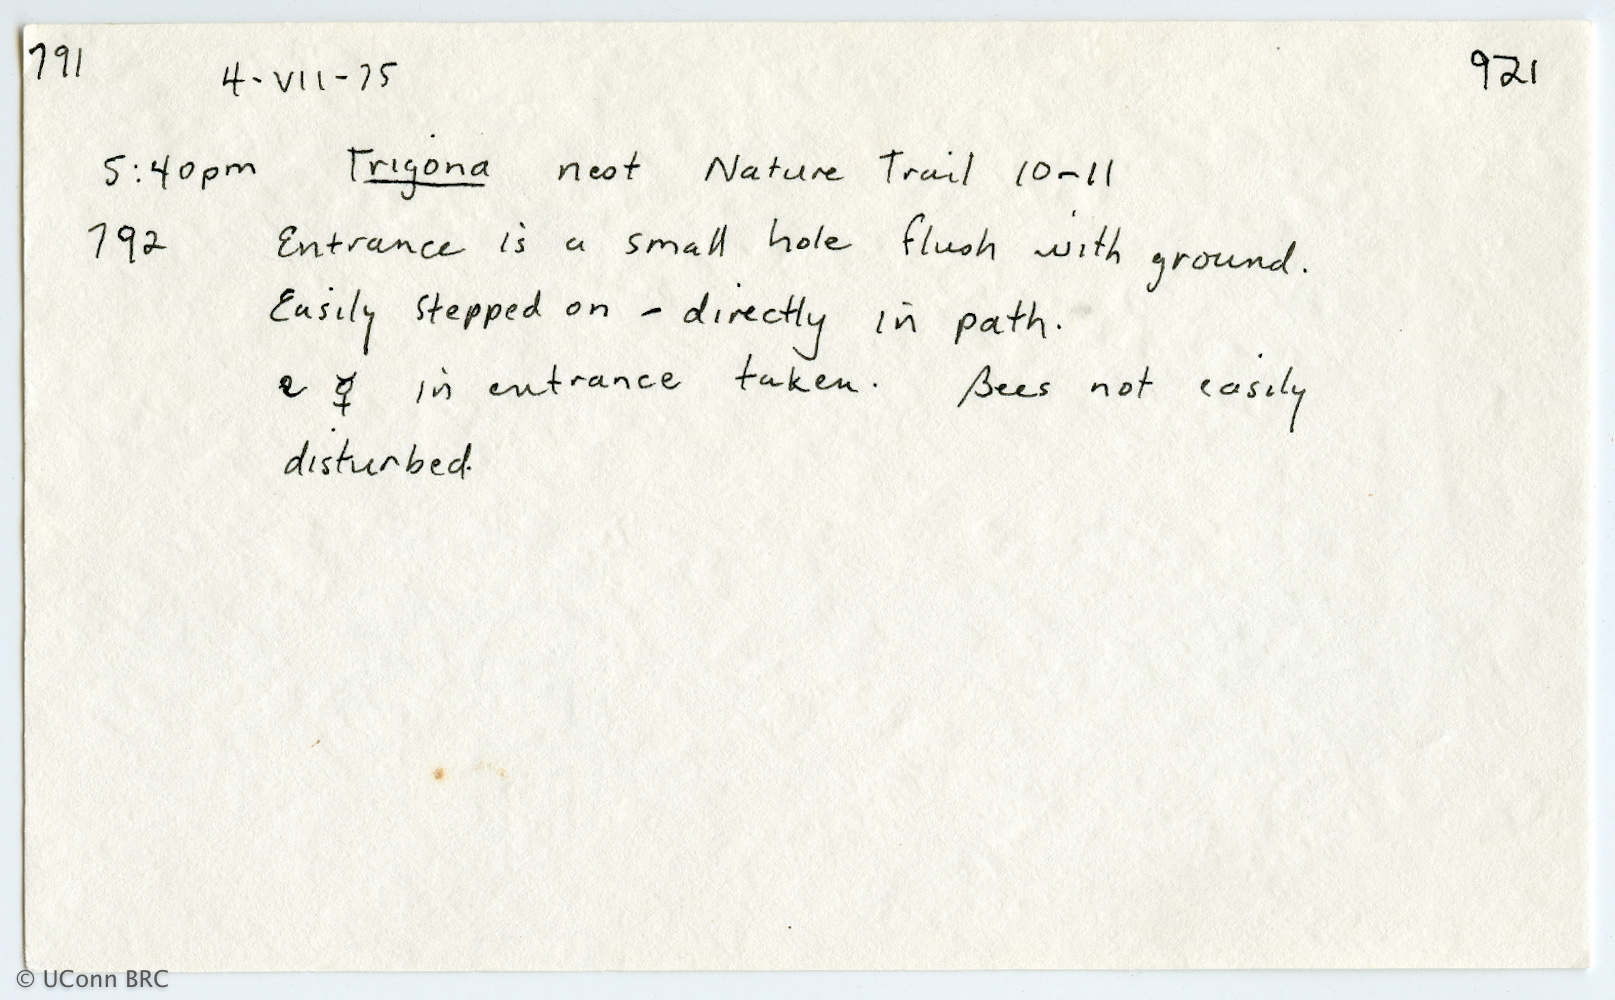 791
4-VII-75
921
5:40pm Trigona nest Nature Trail 10-11
792 Entrance is a small hole flush with ground.
Easily stepped on - directly in path.
2 ☿ in entrance taken. Bees not easily
disturbed.
© UConn BRC